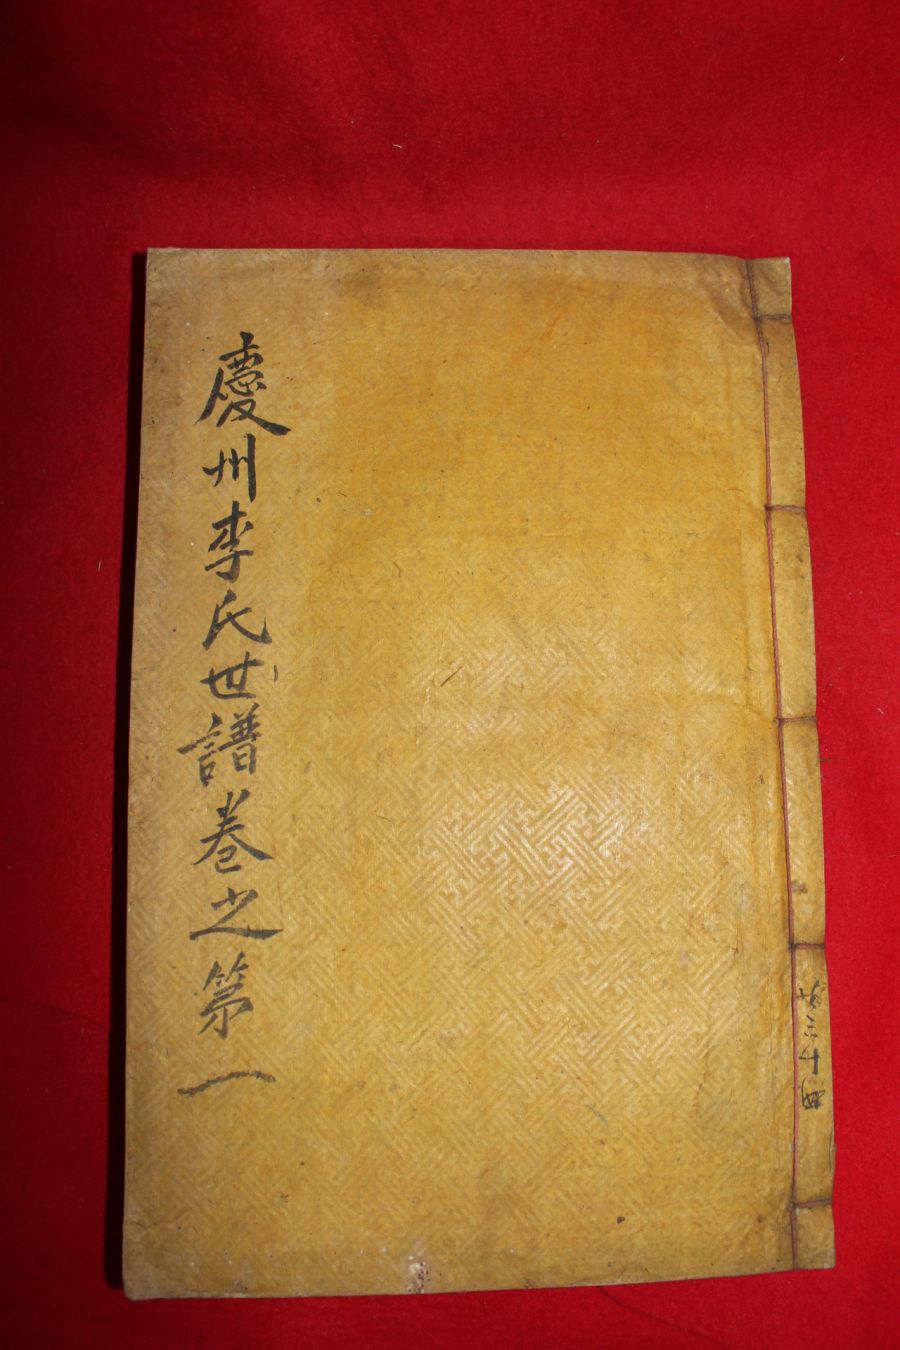 慶州李氏世譜卷之第一
共三十四